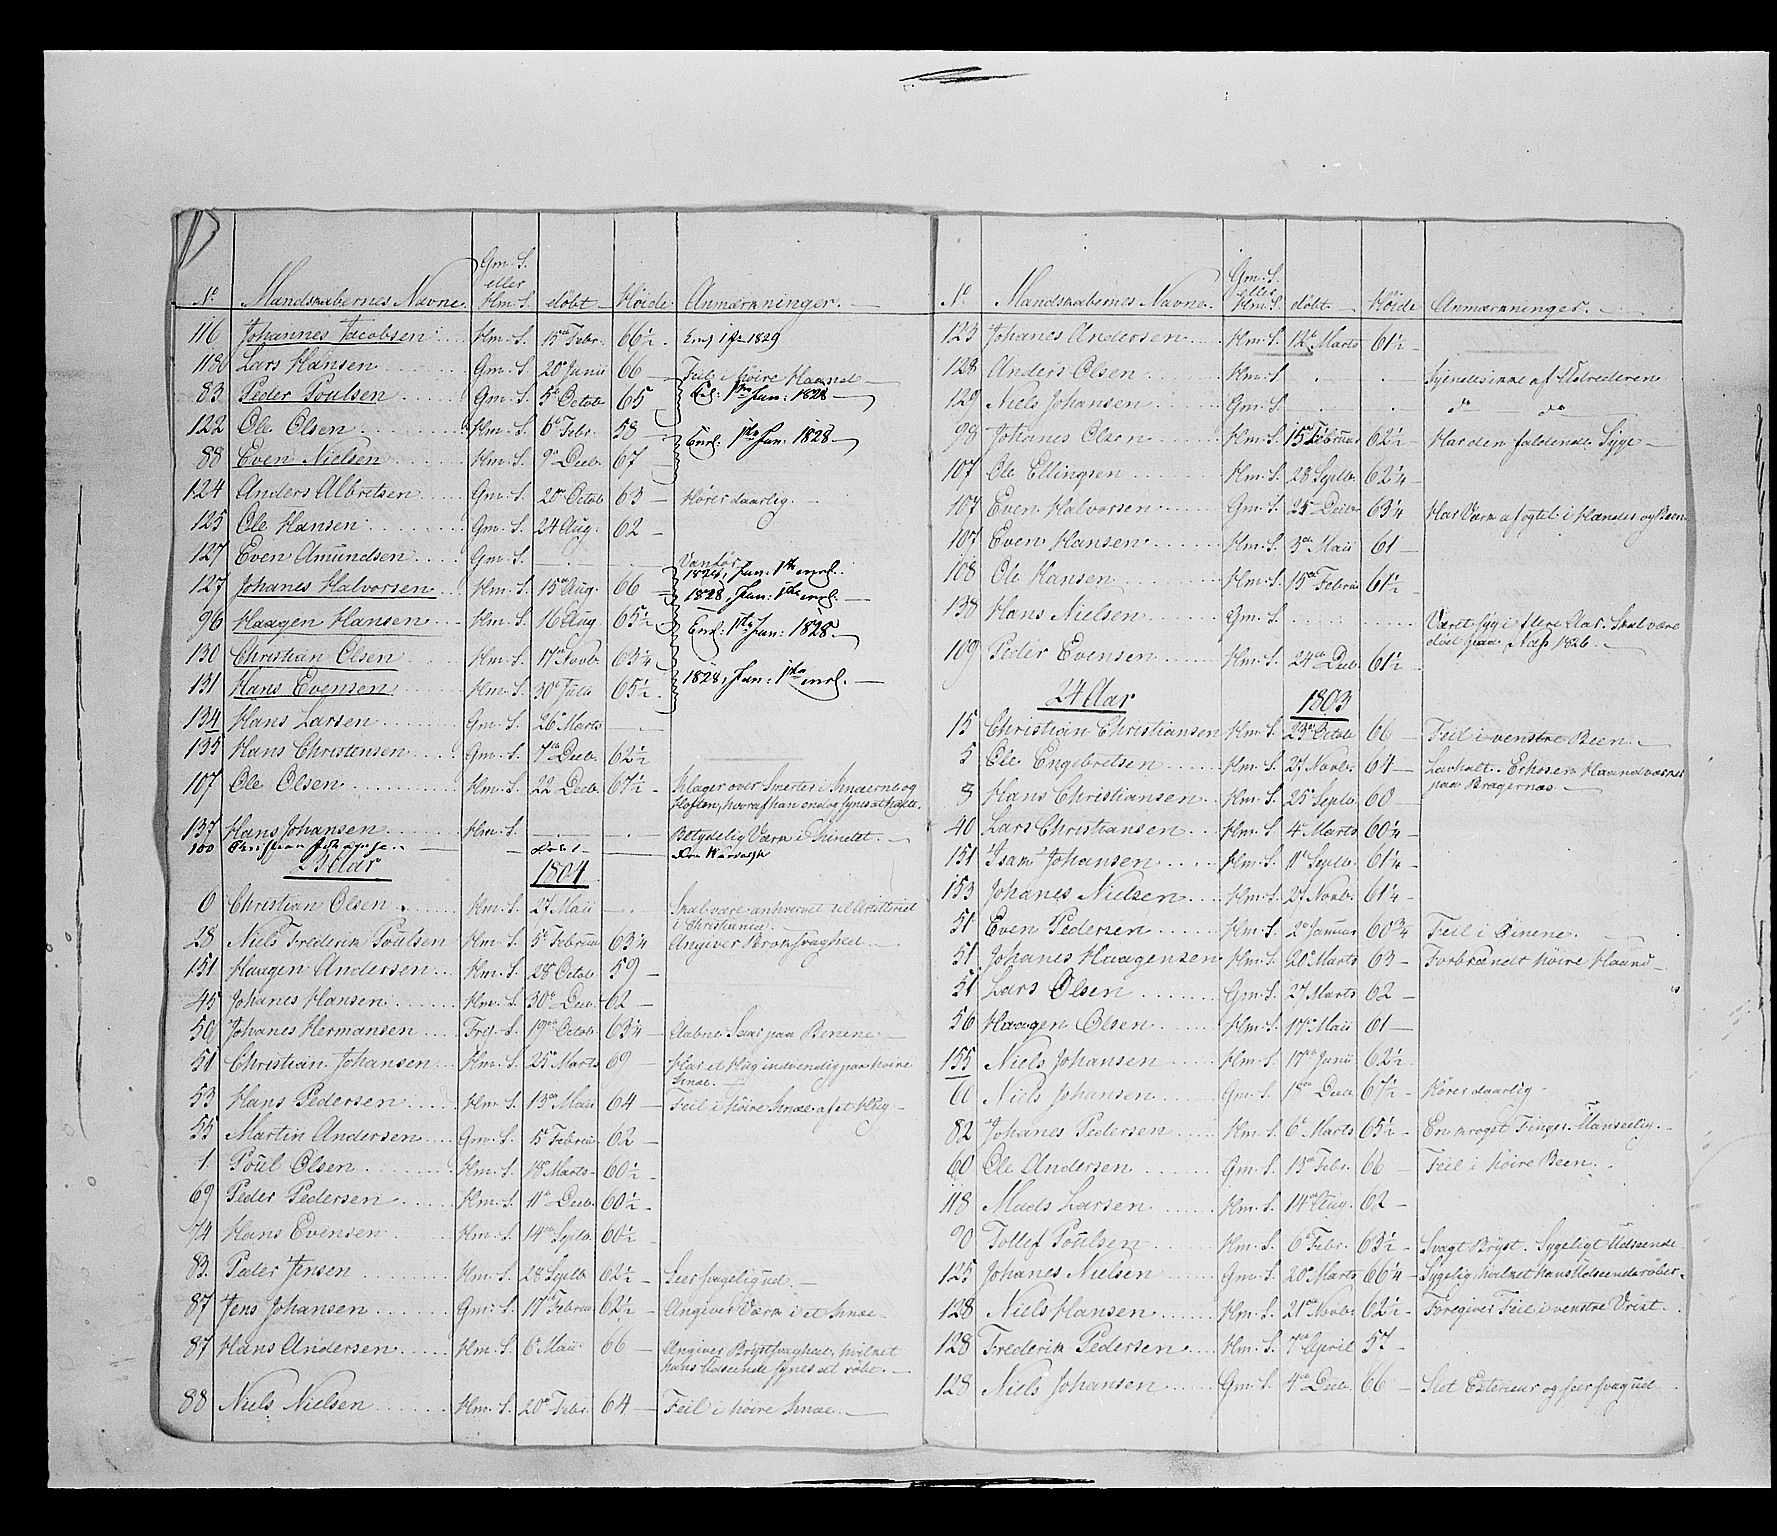 Nº Mandskabernes Navne. Gm. S. eller Hm. S. døbt Høide Anmærkninger.
116 Johannes Jacobsen Hm. S. 15de Febr. 66½
118 Lars Hansen Gm. S. 20de Junii 66 — Feil i høire Haand —
83 Peder Poulsen Gm. S. 5te Octob. 65 1ste Jan: 1828 —
122 Ole Olsen Hm. S. 6te Febr. 58 —
88 Even Nielsen Hm. S. 9de Decb. 67 — Enrl: 1ste Jan: 1828 —
124 Anders Albretsen Gm. S. 20de Octob. 63 — Hører daarlig. —
125 Ole Hansen Gm. S. 24 Aug. 62 —
127 Even Amundsen Gm. S. Vanfør
127 Johanes Halvorsen Hm. S. 15de Aug. 66 — 1828, Jan: 1ste enrl. —
96 Haagen Hansen Hm. S. 16 Aug. 65½ Enrl: 1ste Jan: 1828 —
130 Christian Olsen Hm. S. 17de Novb. 63¼
131 Hans Evensen Hm. S. 30te Julii 65½ 1828, Jan: 1ste enrl. —
134 Hans Larsen Gm. S. 26de Marts —
135 Hans Christensen Gm. S. 7de Decb. 62½
107 Ole Olsen Hm. S. 22 Decb. 67½ Klager over Smerter i Knæerne og
Hoften, hvoraf han endog synes at halte.
137 Hans Johansen Hm. S. Betydelig Værk i
100 Christian
23 Aar 1804
0 Christian Olsen Hm. S. 27 Maii Skal være anhvervet til Artilleriet
i Christiania.
28 Niels Frederik Poulsen Hm. S. 5te Februar 63¼ Angiver Broksvaghed.
151 Haagen Andersen Hm. S. 28 Octob. 59 —
45 Johanes Hansen Hm. S. 30te Decb. 62 —
50 Johanes Hermansen Frij. S. 19de Octob. 63¼ Aabne Saar paa Benene —
51 Christian Johansen Hm. S. 25de Marts 69 — Har et Hug indvendig paa høire
Knæ. —
53 Hans Pedersen Hm. S. 13de Maii 64 — Feil i høire Knæ af et Hug —
55 Martin Andersen Gm. S. 15de Februar 62 —
1 Poul Olsen Hm. S. 18de Marts 60½
69 Peder Pedersen Hm. S. 11te Decb. 60½ —
74 Hans Evensen Hm. S. 14de Septb. 60½ —
83 Peder Jensen Hm. S. 28 Septb. 62½ — Seer svagelig ud. —
87 Jens Johansen Gm. S. 17de Februar 62½ — Angiver Værk i et Knæ —
87 Hans Andersen Hm. S. 6te Maii 66 — Angiver Brystsvaghed, hvilket
hans Udseende synes at røbe. —
88 Niels Nielsen Hm. S. 20de Febr. 64 — Feil i høire Knæe. —
Nº Mandskabernes Navne. Gm. S. eller Hm. S. døbt Høide Anmærkninger.
123 Johanes Andersen Hm. S. 12te Marts 61½ —
128 Anders Olsen Hm. S. Kjendes ikke af Udrederen
129 Niels Johansen Gm. S. do do
98 Johanes Olsen Hm. S. 15de Februar 62½ — Har den faldende Syge —
107 Ole Ellingsen Hm. S. 28 Septb. 62¼ —
107 Even Halvorsen Gm. S. 25de Decb. 63¼ Har Værk af og til i Hænder og Been
107 Even Hansen Hm. S. 3de Maii 61 —
108 Ole Hansen Hm. S. 15de Februar 61½ —
138 Hans Nielsen Gm. S. Været syg i flere Aar. Skal være
død paa
109 Peder Evensen Hm. S. 24de Decb. 61½
24 Aar 1803
15 Christian Christiansen Hm. S. 23de Octob. 66 — Feil i venstre Been. —
5 Ole Engebretsen Hm. S. 27 Novb. 64 — Lavhalt. Erhverver Haandværket
paa Bragernæs —
3 Hans Christiansen Hm. S. 25de Septb. 60 —
40 Lars Christiansen Hm. S. 4de Marts 60¼ —
151 Isak Johansen Hm. S. 11te Septb. 61¼ —
153 Johanes Nielsen Hm. S. 27 Novb. 61¼ —
51 Even Pedersen Hm. S. 2de Januar 60¾ Feil i Øinene.
51 Johanes Haagensen Hm. S. 20de Marts 63 — Forbrændt høire Haand —
51 Lars Olsen Gm. S. 27 Marts 62 —
56 Haagen Olsen Hm. S. 17de Maii 61 —
155 Niels Johansen Hm. S. 17de Junii 62½ —
61 Niels Johansen Gm. S. 18de Decb. 67½ — Hører daarlig
82 Johanes Pedersen Hm. S. 6te Marts 65½ — En kroget Finger. Vanseelig. —
60 Ole Andersen Gm. S. 13de Febr. 66 — Feil i høire Been.
118 Mads Larsen Hm. S. 14de Aug. 62 —
90 Tollef Poulsen Hm. S. 6te Febr. 63½ — Svagt Bryst. Sygeligt Udseende
125 Johanes Nielsen Gm. S. 20de Marts 66¼ — Sygelig, hvilket hans Udseende røber. —
128 Niels Hansen Hm. S. 21de Novb. 62½ — Foregiver Feil i venstre Vrist.
128 Frederik Pedersen Hm. S. 7de April 57 —
128 Niels Johansen Gm. S. 4de Decb. 66 — Slet Exterieur og seer svag ud